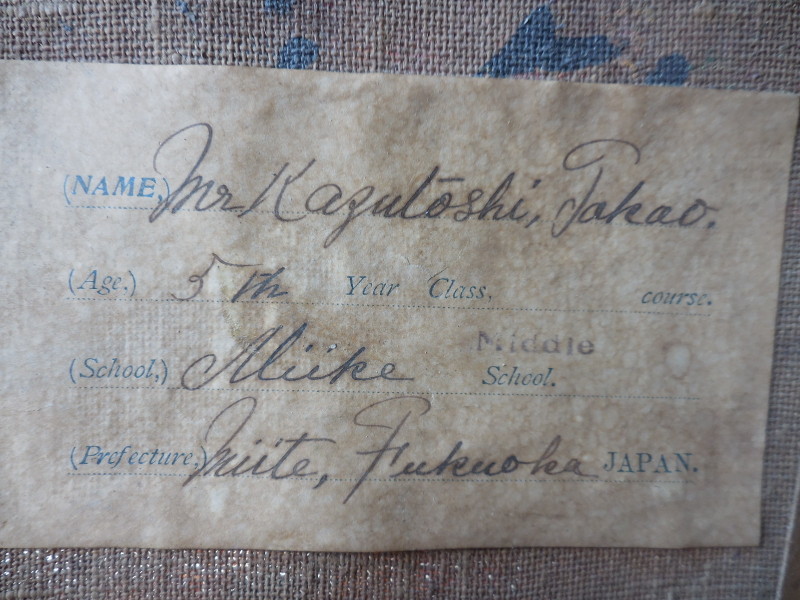 (NAME,) Mr Kazutōshi, Takao.
(Age.) 5th Year Class, course.
(School,) Miike Middle School.
(Prefecture,) Miite, Fukuoka JAPAN.